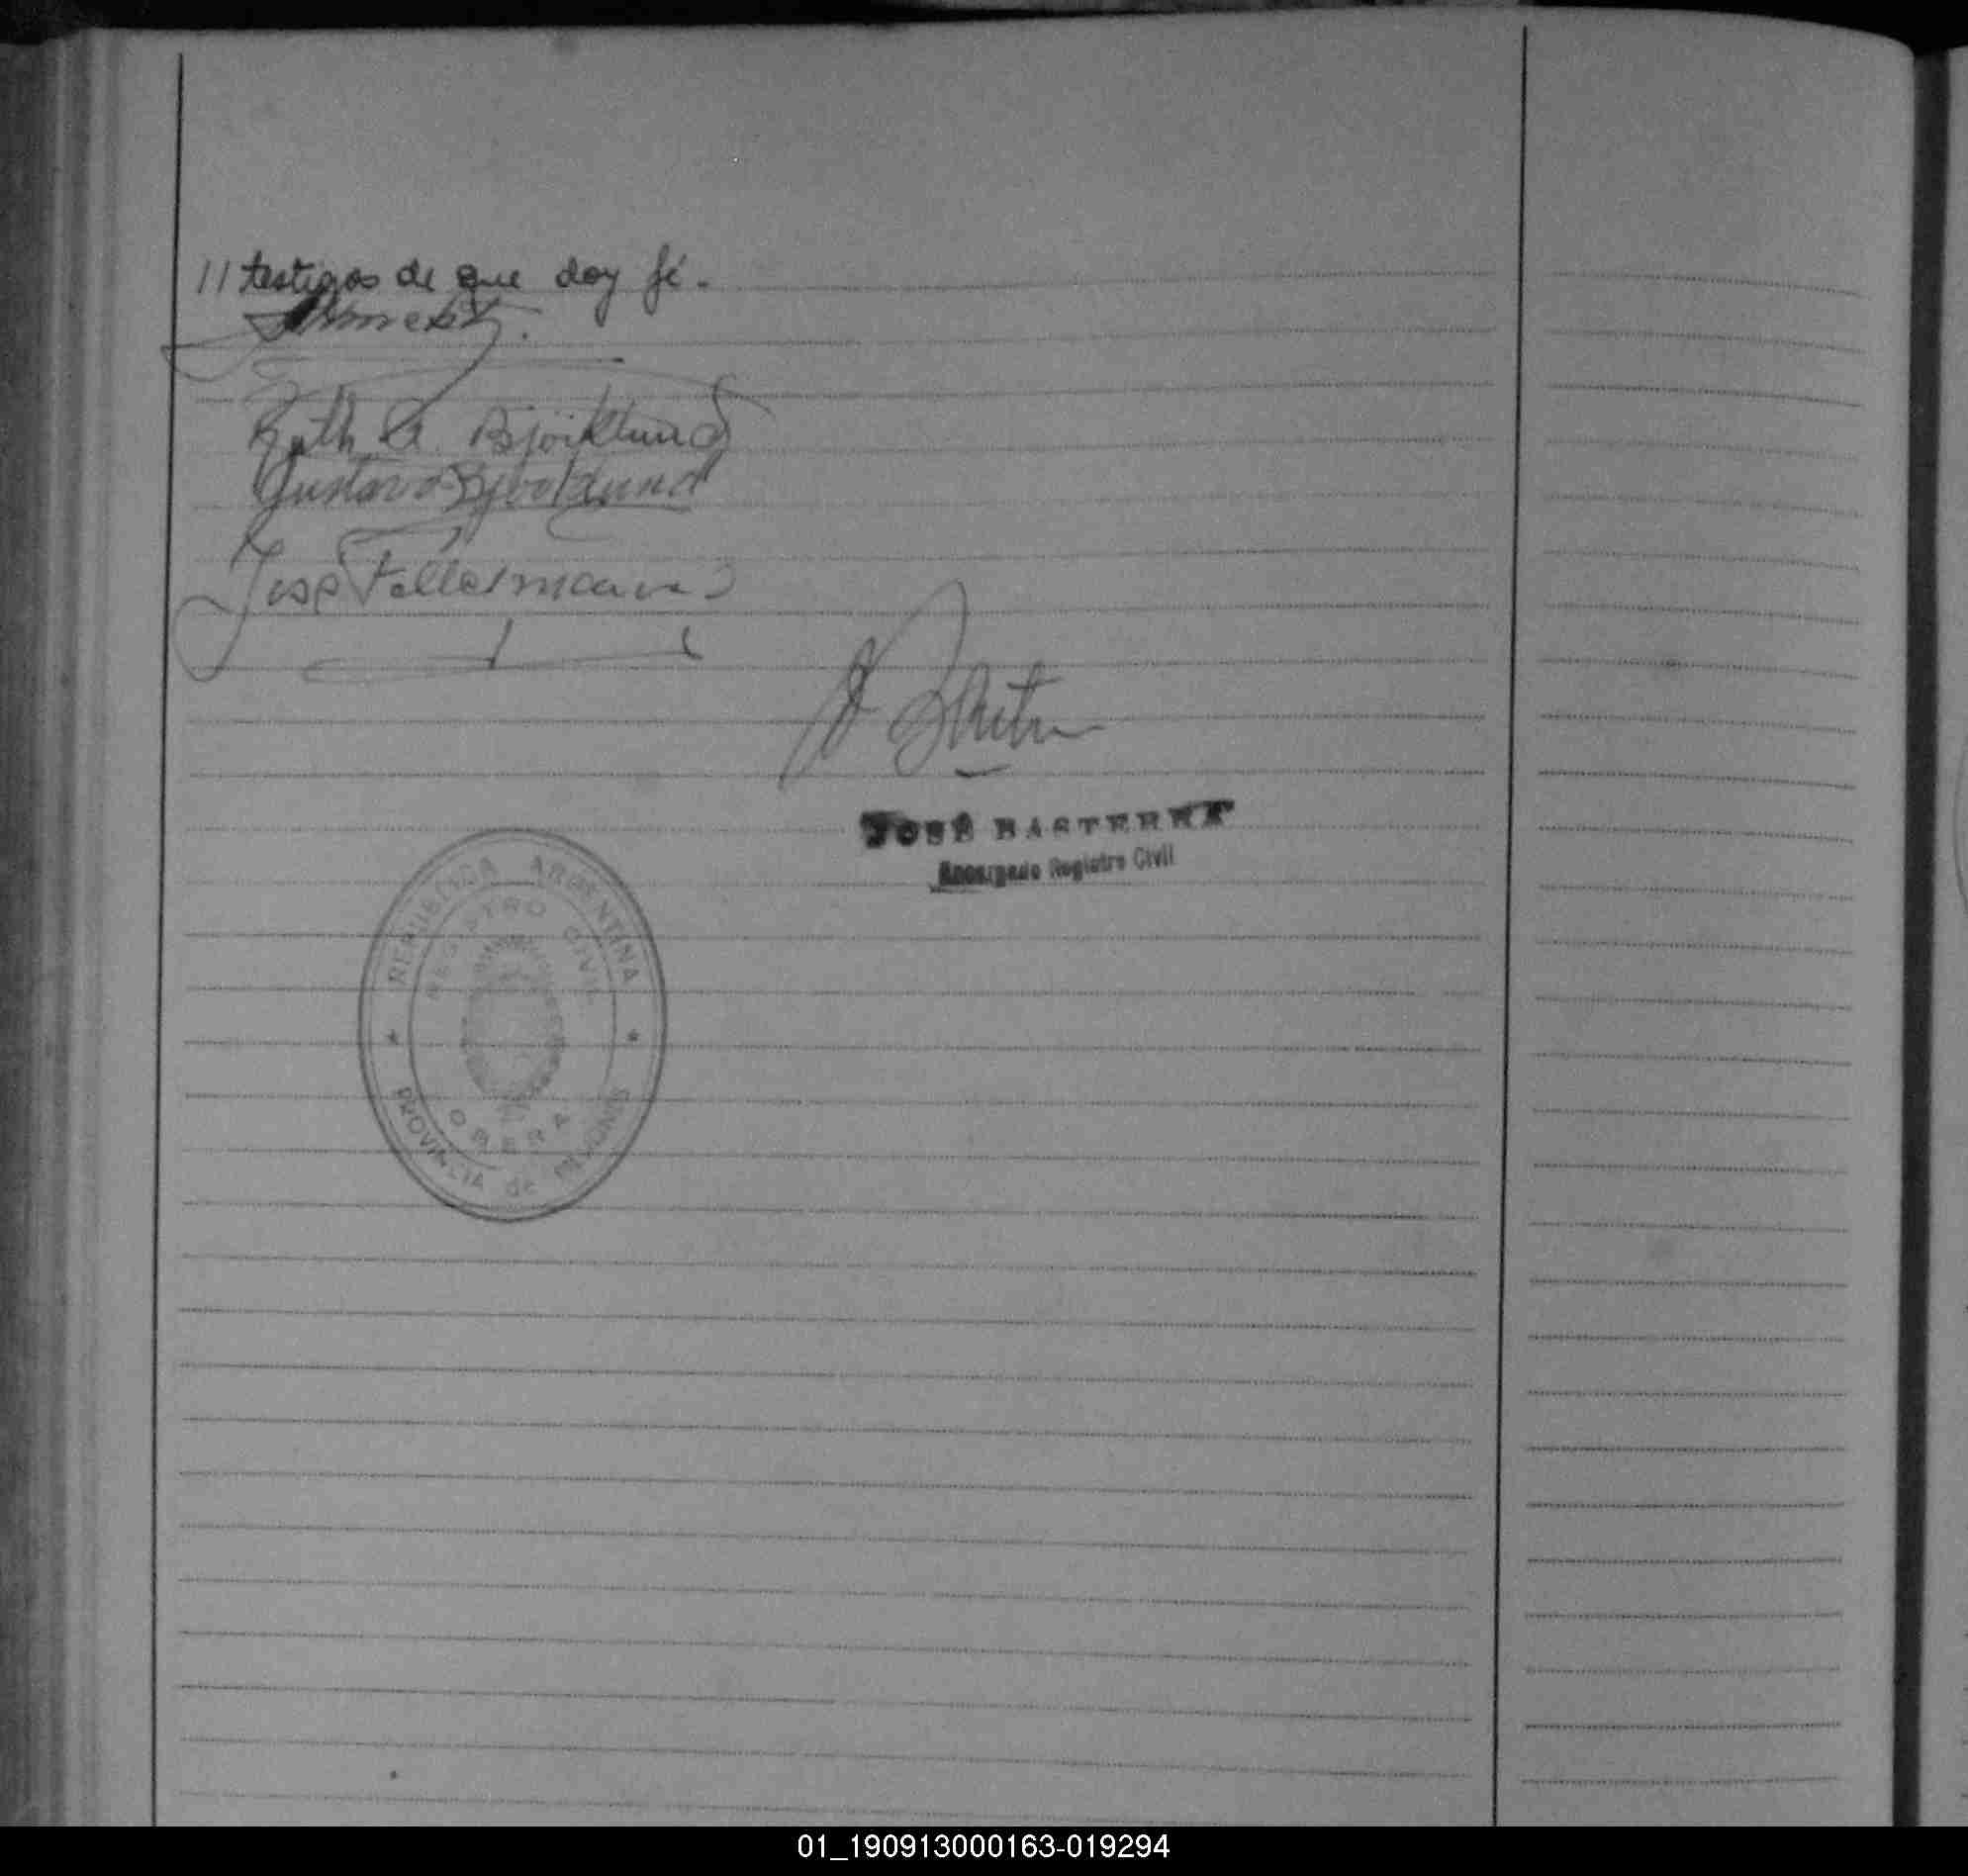 // testigos de que doy fé.
Ruth A. Björklund
Gustavo Bjorklund
José Fellermann
JOSÉ BASTERRA
Encargado Registro Civil
REPUBLICA ARGENTINA
REGISTRO CIVIL
OBERA
PROVINCIA de MISIONES
01_190913000163-019294